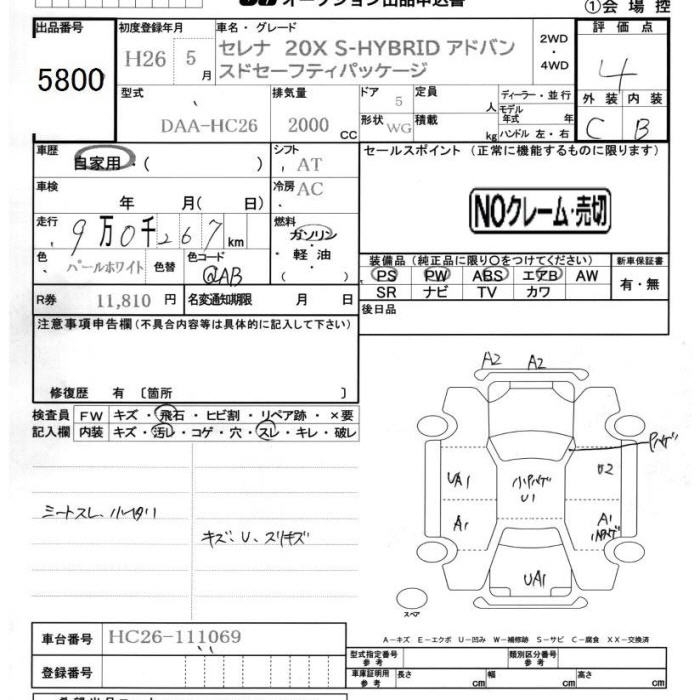 オークション出品申込書
①会場控
出品番号
5800
初度登録年月
H26 5月
車名・グレード
セレナ 20X S-HYBRID アドバン
スドセーフティパッケージ
2WD
・
4WD
評価点
4
外装 内装
C B
型式
DAA-HC26
排気量
2000 CC
ドア 5
形状 WG
定員 人
積載 kg
ディーラー・並行
モデル年式 年
ハンドル 左・右
車歴
自家用・( )
シフト
AT
車検
年 月( 日)
冷房
AC
走行
9万0千267km
燃料
ガソリン
・軽油
( )
色
パールホワイト
色替
色コード
QAB
R券 11,810円
名変通知期限 月 日
セールスポイント (正常に機能するものに限ります)
NOクレーム・売切
装備品(純正品に限り○をつけてください)
PS PW ABS エアB AW
SR ナビ TV カワ
新車保証書
有・無
後日品
注意事項申告欄(不具合内容等は具体的に記入して下さい)
修復歴 有 〔箇所 〕
検査員
記入欄
FW キズ・飛石・ヒビ割・リペア跡・×要
内装 キズ・汚レ・コゲ・穴・スレ・キレ・破レ
シートスレ、
キズ、U、スリキズ
A2 A2
UA1
U2
A1
U1
A1
UA1
スペア
A－キズ E－エクボ U－凹み W－補修跡 S－サビ C－腐食 XX－交換済
車台番号 HC26-111069
登録番号
型式指定番号
参考
類別区分番号
参考
車庫証明用
参考
長さ cm
幅 cm
高さ cm